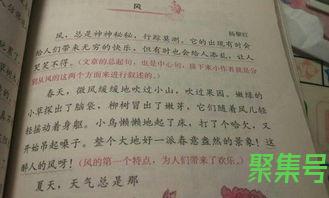 风
杨黎红
风，总是神神秘秘，行踪莫测。它的出现有时会
给人们带来无穷的快乐，但有时也会给人添乱，让人
哭笑不得。(文章的总起句，也是中心句，接下来小作者就是分
别从风的这两个方面来进行叙述的。)
春天，微风缓缓地吹过小山，吹过果园。嫩绿的
小草探出了脑袋，柳树冒出了嫩芽，它们随着风儿轻
轻摇动着身躯。小鸟懒懒地起了床，打了个哈欠，又
开始吊起嗓子。整个大地好一派春意盎然的景象！这
醉人的风呀！(风的第一个特点，为人们带来了欢乐。)
夏天，天气总是那
聚集号